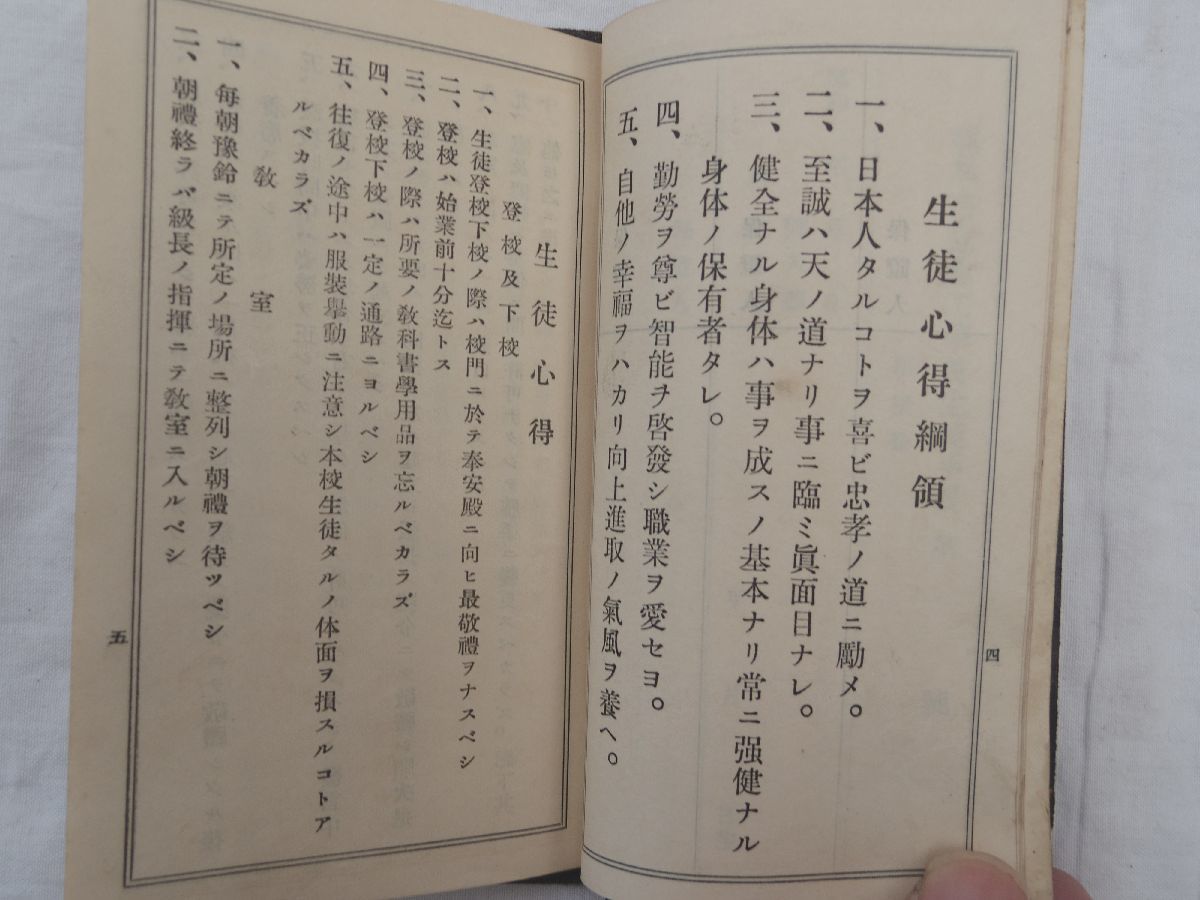 生徒心得綱領
一、日本人タルコトヲ喜ビ忠孝ノ道ニ勵メ。
二、至誠ハ天ノ道ナリ事ニ臨ミ眞面目ナレ。
三、健全ナル身体ハ事ヲ成スノ基本ナリ常ニ强健ナル
身体ノ保有者タレ。
四、勤勞ヲ尊ビ智能ヲ啓發シ職業ヲ愛セヨ。
五、自他ノ幸福ヲハカリ向上進取ノ氣風ヲ養ヘ。
四
生徒心得
登校及下校
一、生徒登校下校ノ際ハ校門ニ於テ奉安殿ニ向ヒ最敬禮ヲナスベシ
二、登校ハ始業前十分迄トス
三、登校ノ際ハ所要ノ敎科書學用品ヲ忘ルベカラズ
四、登校下校ハ一定ノ通路ニヨルベシ
五、往復ノ途中ハ服裝擧動ニ注意シ本校生徒タルノ体面ヲ損スルコトア
ルベカラズ
敎室
一、每朝豫鈴ニテ所定ノ場所ニ整列シ朝禮ヲ待ツベシ
二、朝禮終ラバ級長ノ指揮ニテ敎室ニ入ルベシ
五